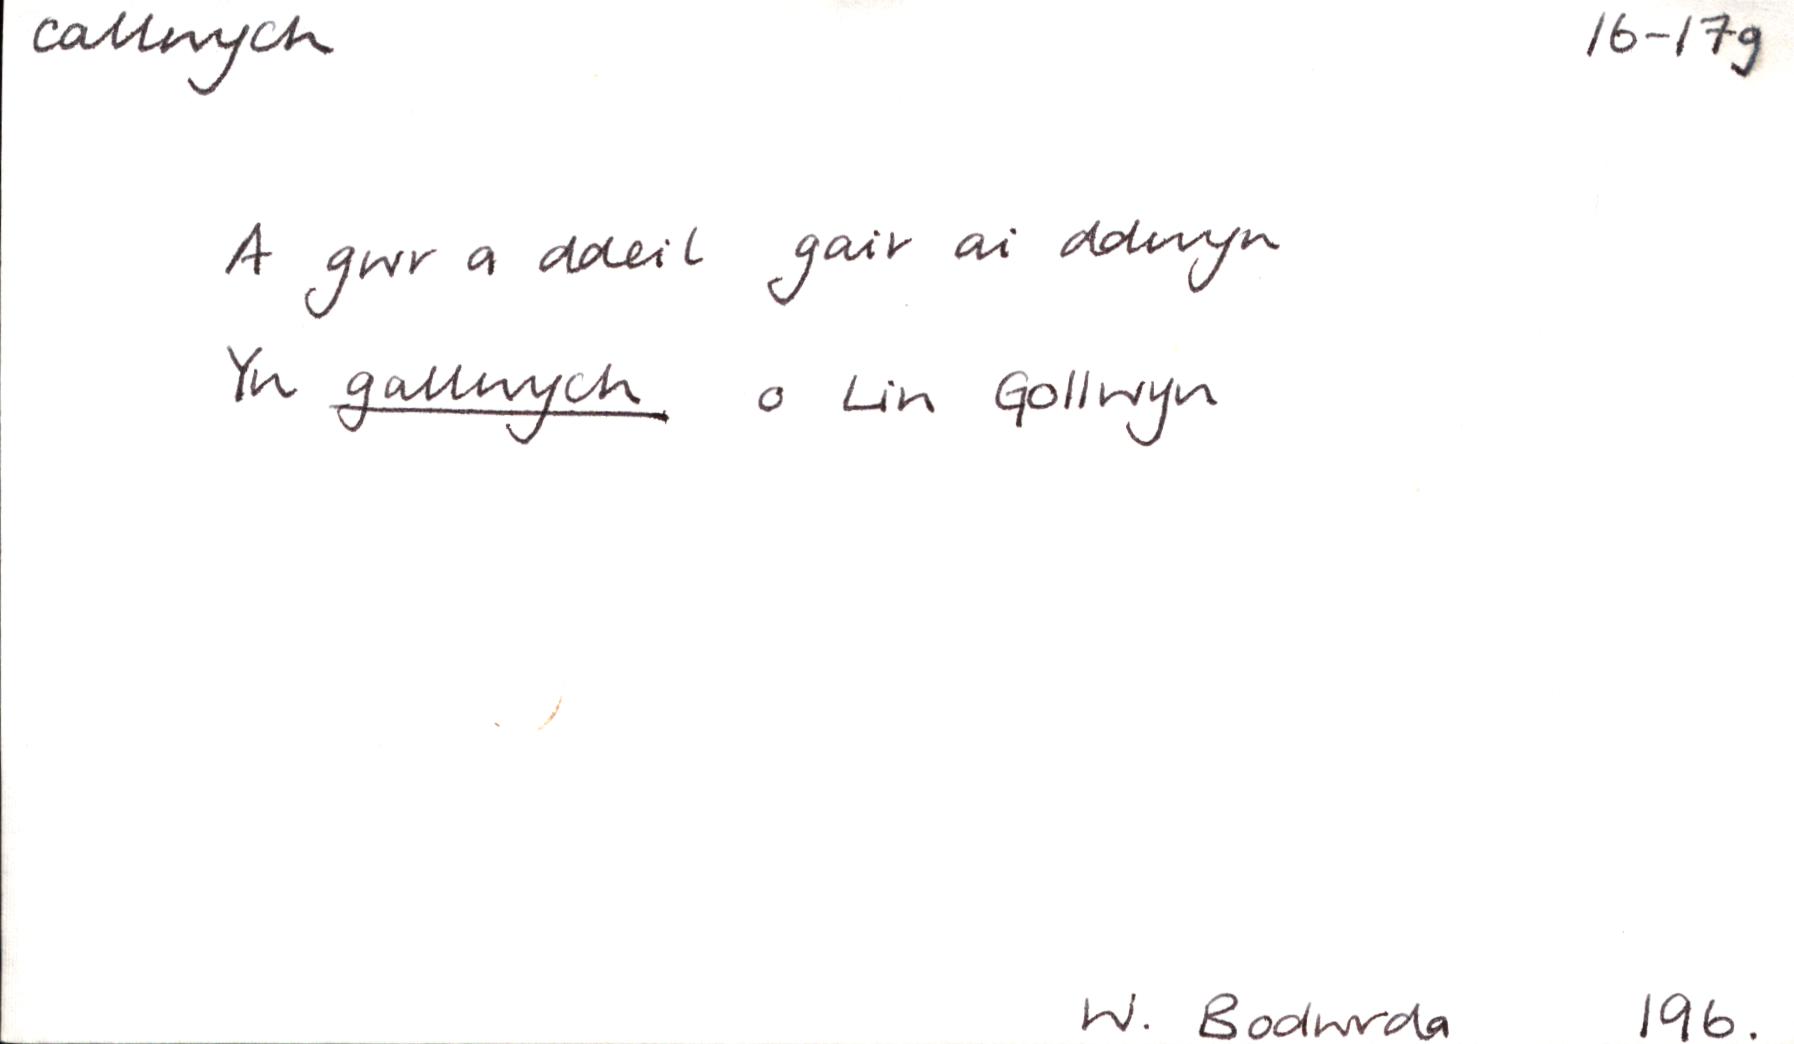 callwych 16-17g
A gwr a ddeil gair ai ddwyn
Yn gallwych o Lin Gollwyn
W. Bodwrda 196.